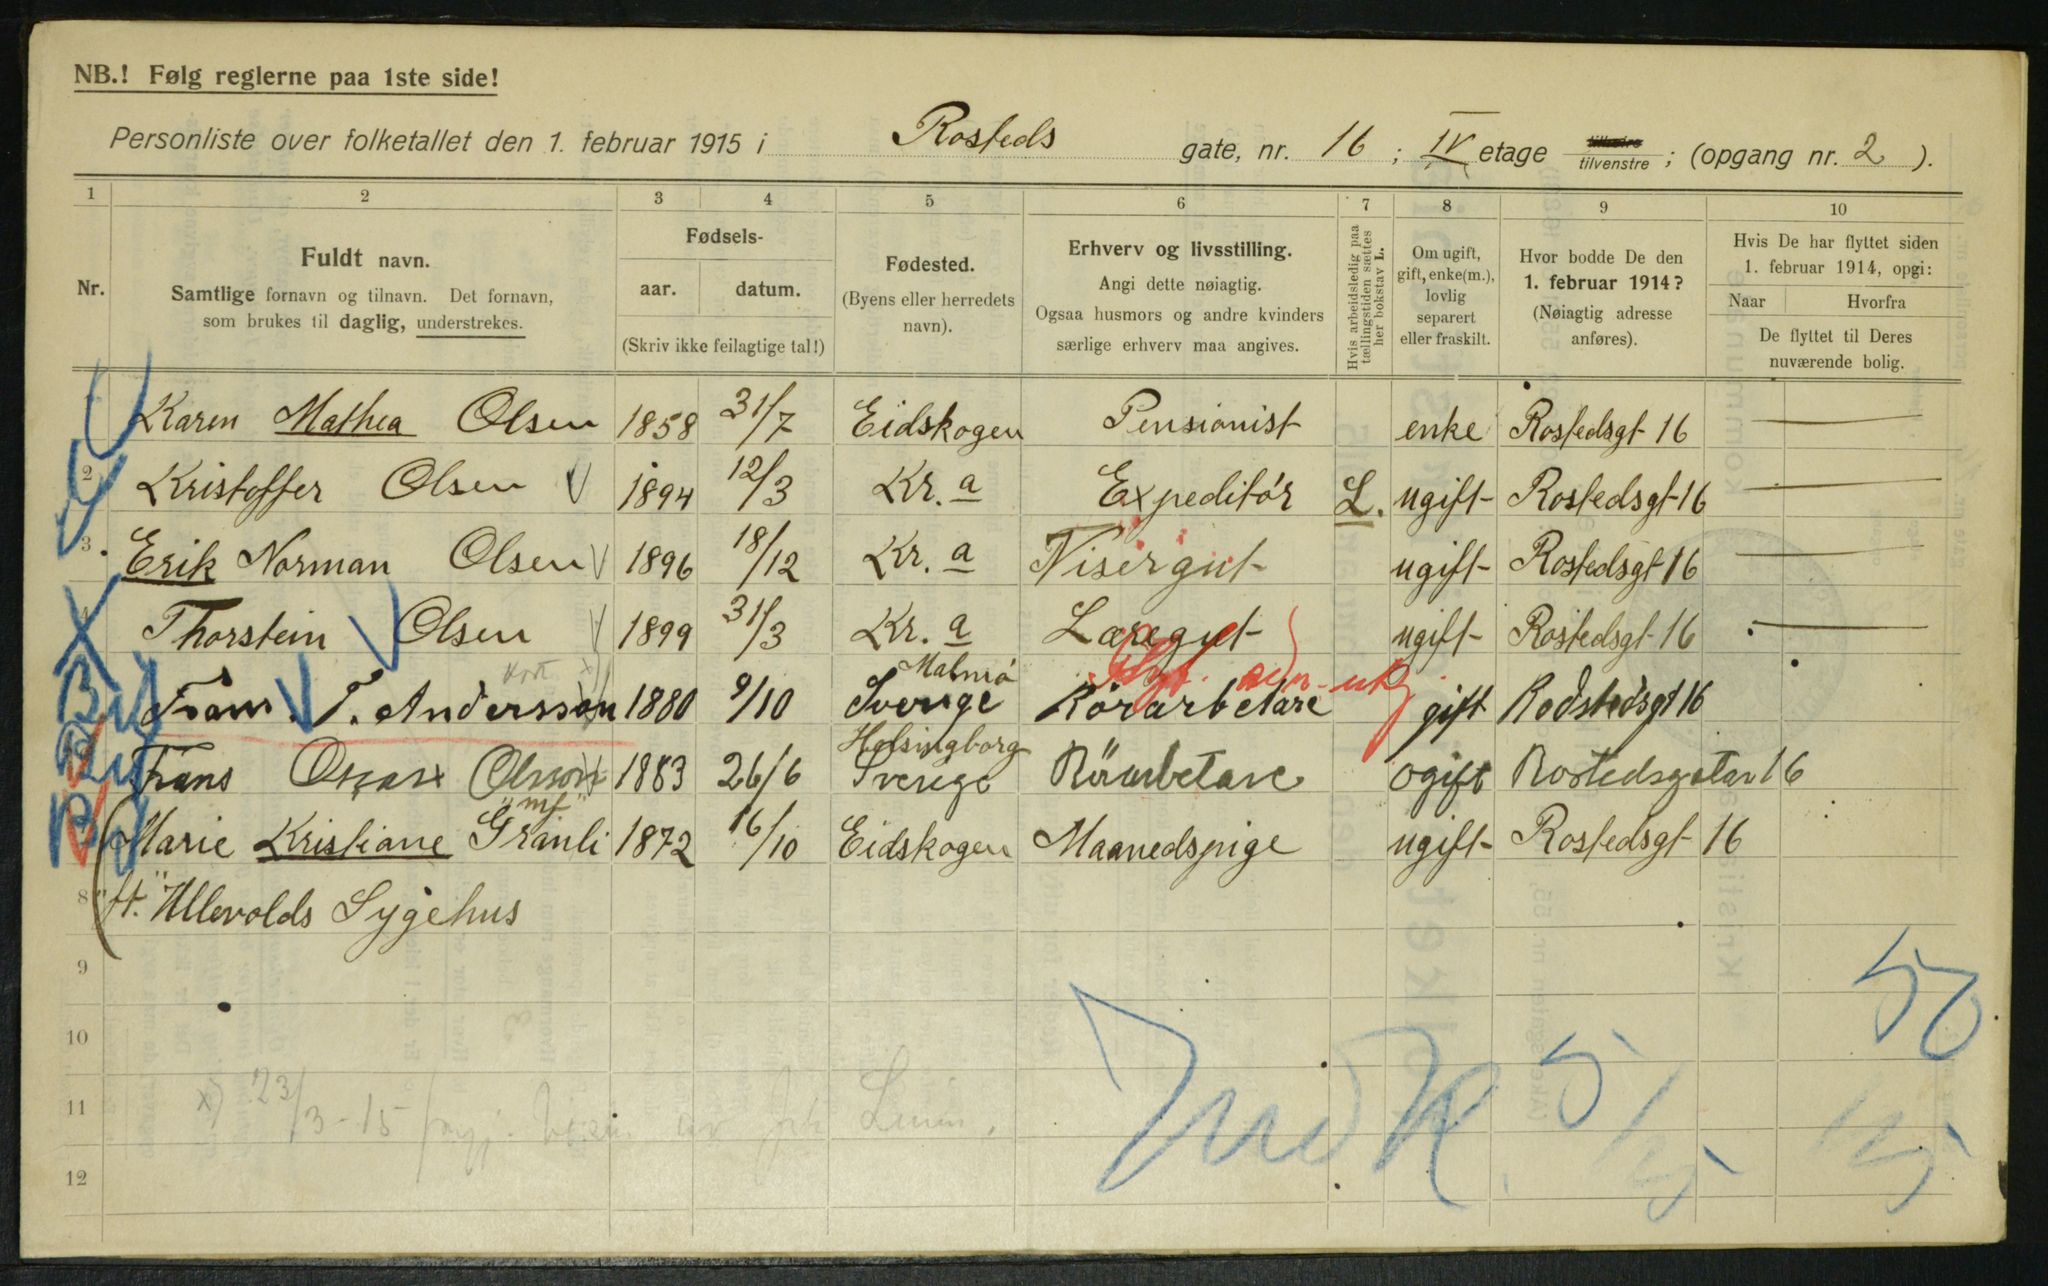 NB.! Følg reglerne paa 1ste side!
Personliste over folketallet den 1. februar 1915 i Rosteds gate, nr. 16 ; IV etage tilvenstre ; (opgang nr. 2 ).
1 2 3 4 5 6 7 8 9 10
Nr.
Fuldt navn.
Samtlige fornavn og tilnavn. Det fornavn,
som brukes til daglig, understrekes.
Fødsels-
aar. datum.
(Skriv ikke feilagtige tal!)
Fødested.
(Byens eller herredets
navn).
Erhverv og livsstilling.
Angi dette nøiagtig.
Ogsaa husmors og andre kvinders
særlige erhverv maa angives.
Hvis arbeidsledig paa
tællingstiden sættes
her bokstav L.
Om ugift,
gift, enke(m.),
lovlig
separert
eller fraskilt.
Hvor bodde De den
1. februar 1914?
(Nøiagtig adresse
anføres).
Hvis De har flyttet siden
1. februar 1914, opgi:
Naar Hvorfra
De flyttet til Deres
nuværende bolig.
Karen Mathea Olsen 1858 31/7 Eidskogen Pensionist enke Rostedsgt 16 —
2 Kristoffer Olsen 1894 12/3 Kr. a Expeditør L. ugift Rostedsgt 16 —
3 Erik Norman Olsen 1896 18/12 Kr. a Visergut ugift Rostedsgt 16 —
4 Thorstein Olsen 1899 31/3 Kr. a Læregut ugift Rostedsgt 16 —
Malmö
Frans. T. Andersson 1880 9/10 Sverige Rörarbetare gift Rodstedsgt 16
Helsingborg
Frans Oscar Olsson 1883 26/6 Sverege Rörarbetare ogift Rostedsgatan 16
"mf"
Marie Kristiane Granli 1872 16/10 Eidskogen Maanedspige ugift Rostedsgt 16
8 "ft." Ullevolds Sygehus
9
50
10
11 x) 23/3-15
12